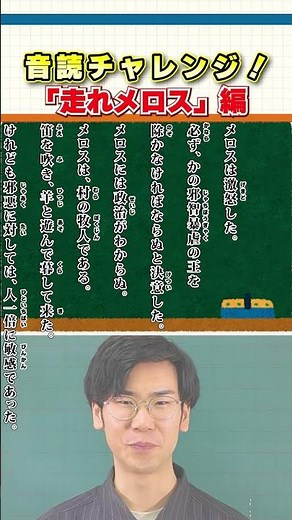 音読チャレンジ！
「走れメロス」編
メロスは激怒した。
必ず、かの邪智暴虐の王を
除かなければならぬと決意した。
メロスには政治がわからぬ。
メロスは、村の牧人である。
笛を吹き、羊と遊んで暮して来た。
けれども邪悪に対しては、人一倍に敏感であった。